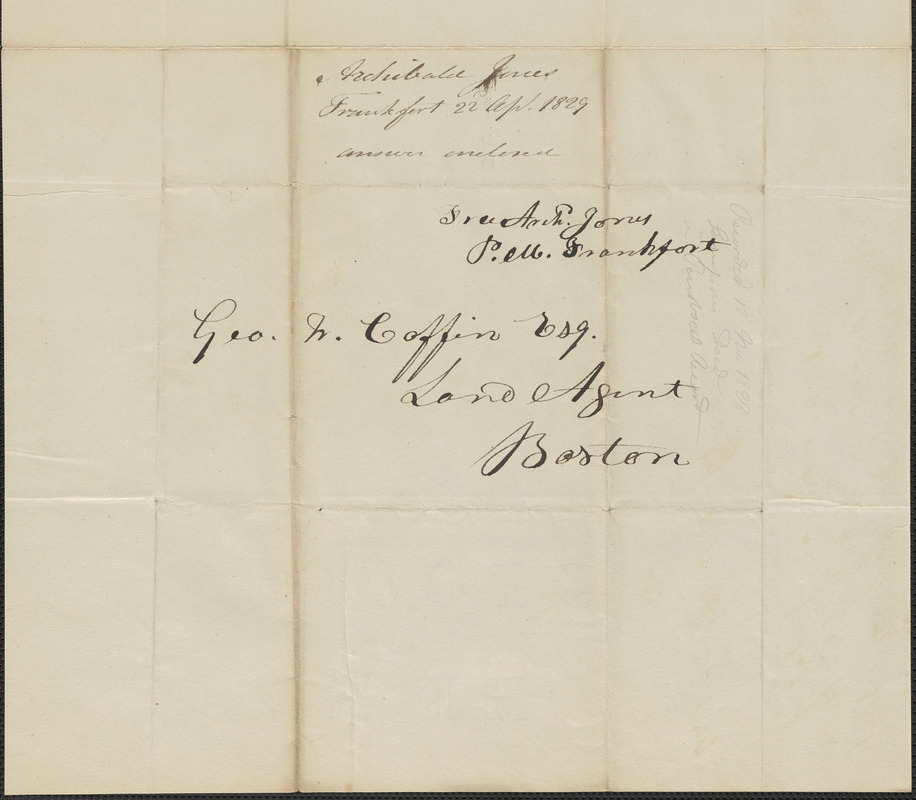 Archibald Jones
Frankfort 22 Apl. 1829
answer enclosed
Free Archd. Jones
P. M. Frankfort
Geo. W. Coffin Esq.
Land Agent
Boston